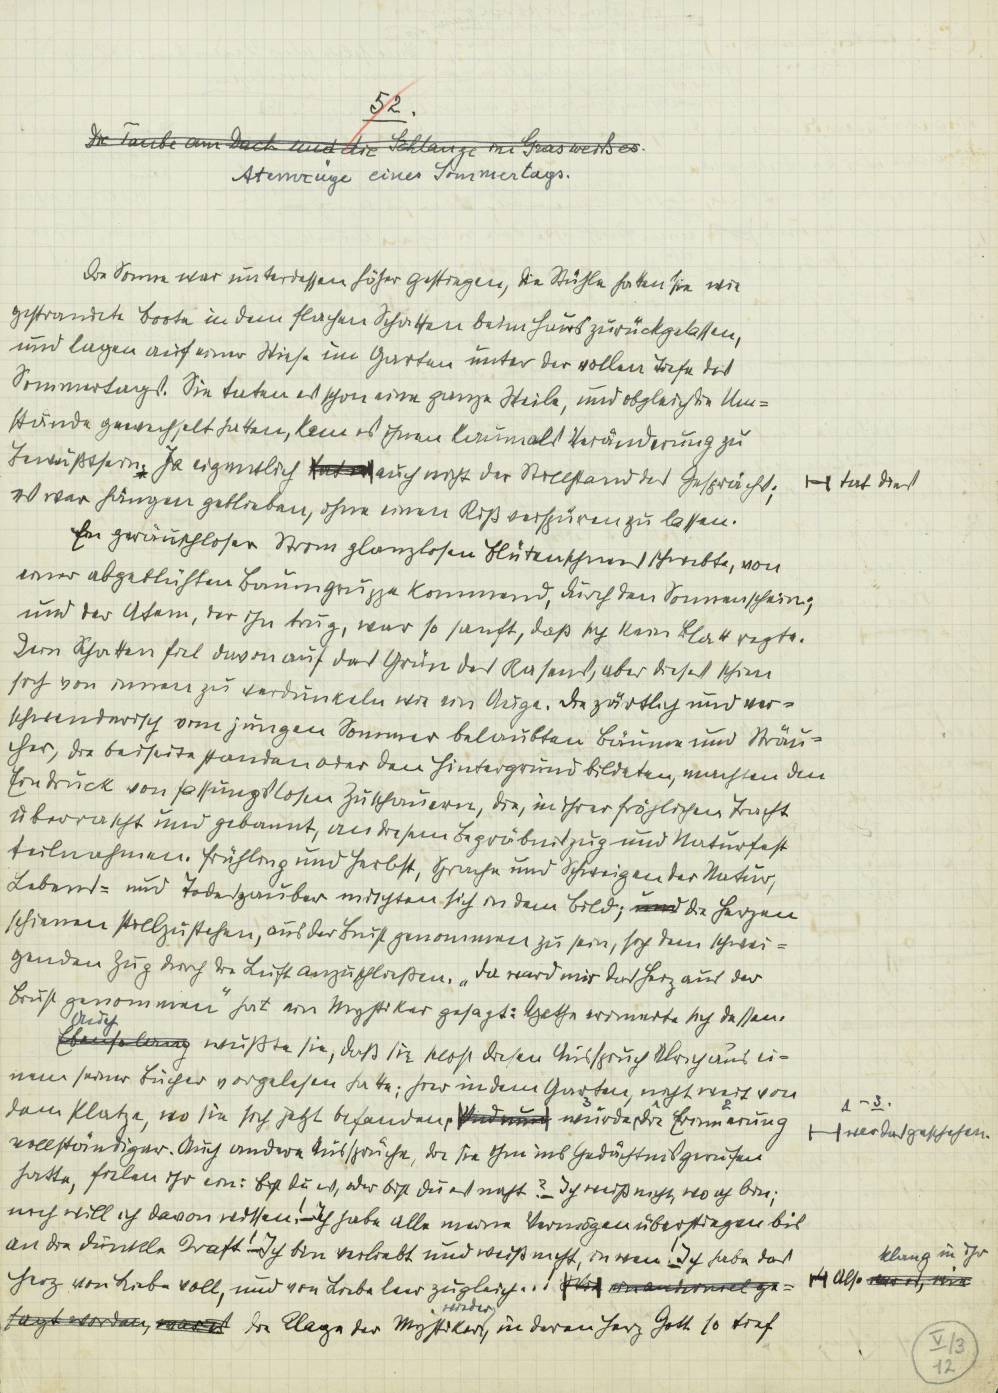 52.
Die Taube am Dach und die Schlange im Gras
Atemzüge eines Sommertags.
Die Sonne war unterdessen höher gestiegen, die Stühle hatten sie wie
gestrandete Boote in dem flachen Schatten beim Haus zurückgelassen,
und lagen auf einer Wiese im Garten unter der vollen Tiefe des
Sommertags. Sie taten es schon eine ganze Weile, und obgleich die Um=
stände gewechselt hatten, kam es ihnen kaum als Veränderung zu
Bewußtsein. Ja eigentlich tat es auch nicht der Stillstand des Gesprächs; tat dies
es war hängen geblieben, ohne einen Riß verspüren zu lassen.
Ein geräuschloser Strom glanzlosen Blütenschnees schwebte, von
einer abgeblühten Baumgruppe kommend, durch den Sonnenschein;
und der Atem, der ihn trug, war so sanft, daß sich kein Blatt regte.
Kein Schatten fiel davon auf das Grün des Rasens, aber dieses schien
sich von innen zu verdunkeln wie ein Auge. Die zärtlich und ver=
schwenderisch vom jungen Sommer belaubten Bäume und Sträu=
cher, die beiseite standen oder den Hintergrund bildeten, machten den
Eindruck von fassungslosen Zuschauern, die, in ihrer fröhlichen Tracht
überrascht und gebannt, an diesem Begräbniszug und Naturfest
teilnahmen. Frühling und Herbst, Sprache und Schweigen der Natur,
Lebens= und Todeszauber mischten sich in dem Bild; und die Herzen
schienen stillzustehen, aus der Brust genommen zu sein, sich dem schwei=
genden Zug durch die Luft anzuschließen. „Da ward mir das Herz aus der
Brust genommen" hat ein Mystiker gesagt: Agathe erinnerte sich dessen.
Auch
Ebensolang wußte sie, daß sie selbst diesen Ausspruch Ulrich aus ei=
nem seiner Bücher vorgelesen hatte; hier in dem Garten, nicht weit von
dem Platze, wo sie sich jetzt befanden, Und nun wurde die Erinnerung 1-3. war das geschehen.
vollständiger. Auch andere Aussprüche, die sie ihm ins Gedächtnis gerufen
hatte, fielen ihr ein: Bist du es, oder bist du es nicht? Ich weiß nicht, wo ich bin;
noch will ich davon wissen! Ich habe alle meine Vermögen überstiegen bis
an die dunkle Kraft! Ich bin verliebt und weiß nicht, in wen! Ich habe das
Herz von Liebe voll, und von Liebe leer zugleich..! ein andermal ge= Also klang in ihr
sagt worden, war es die Klage der Mystiker wieder, in deren Herz Gott so tief
V/3
12